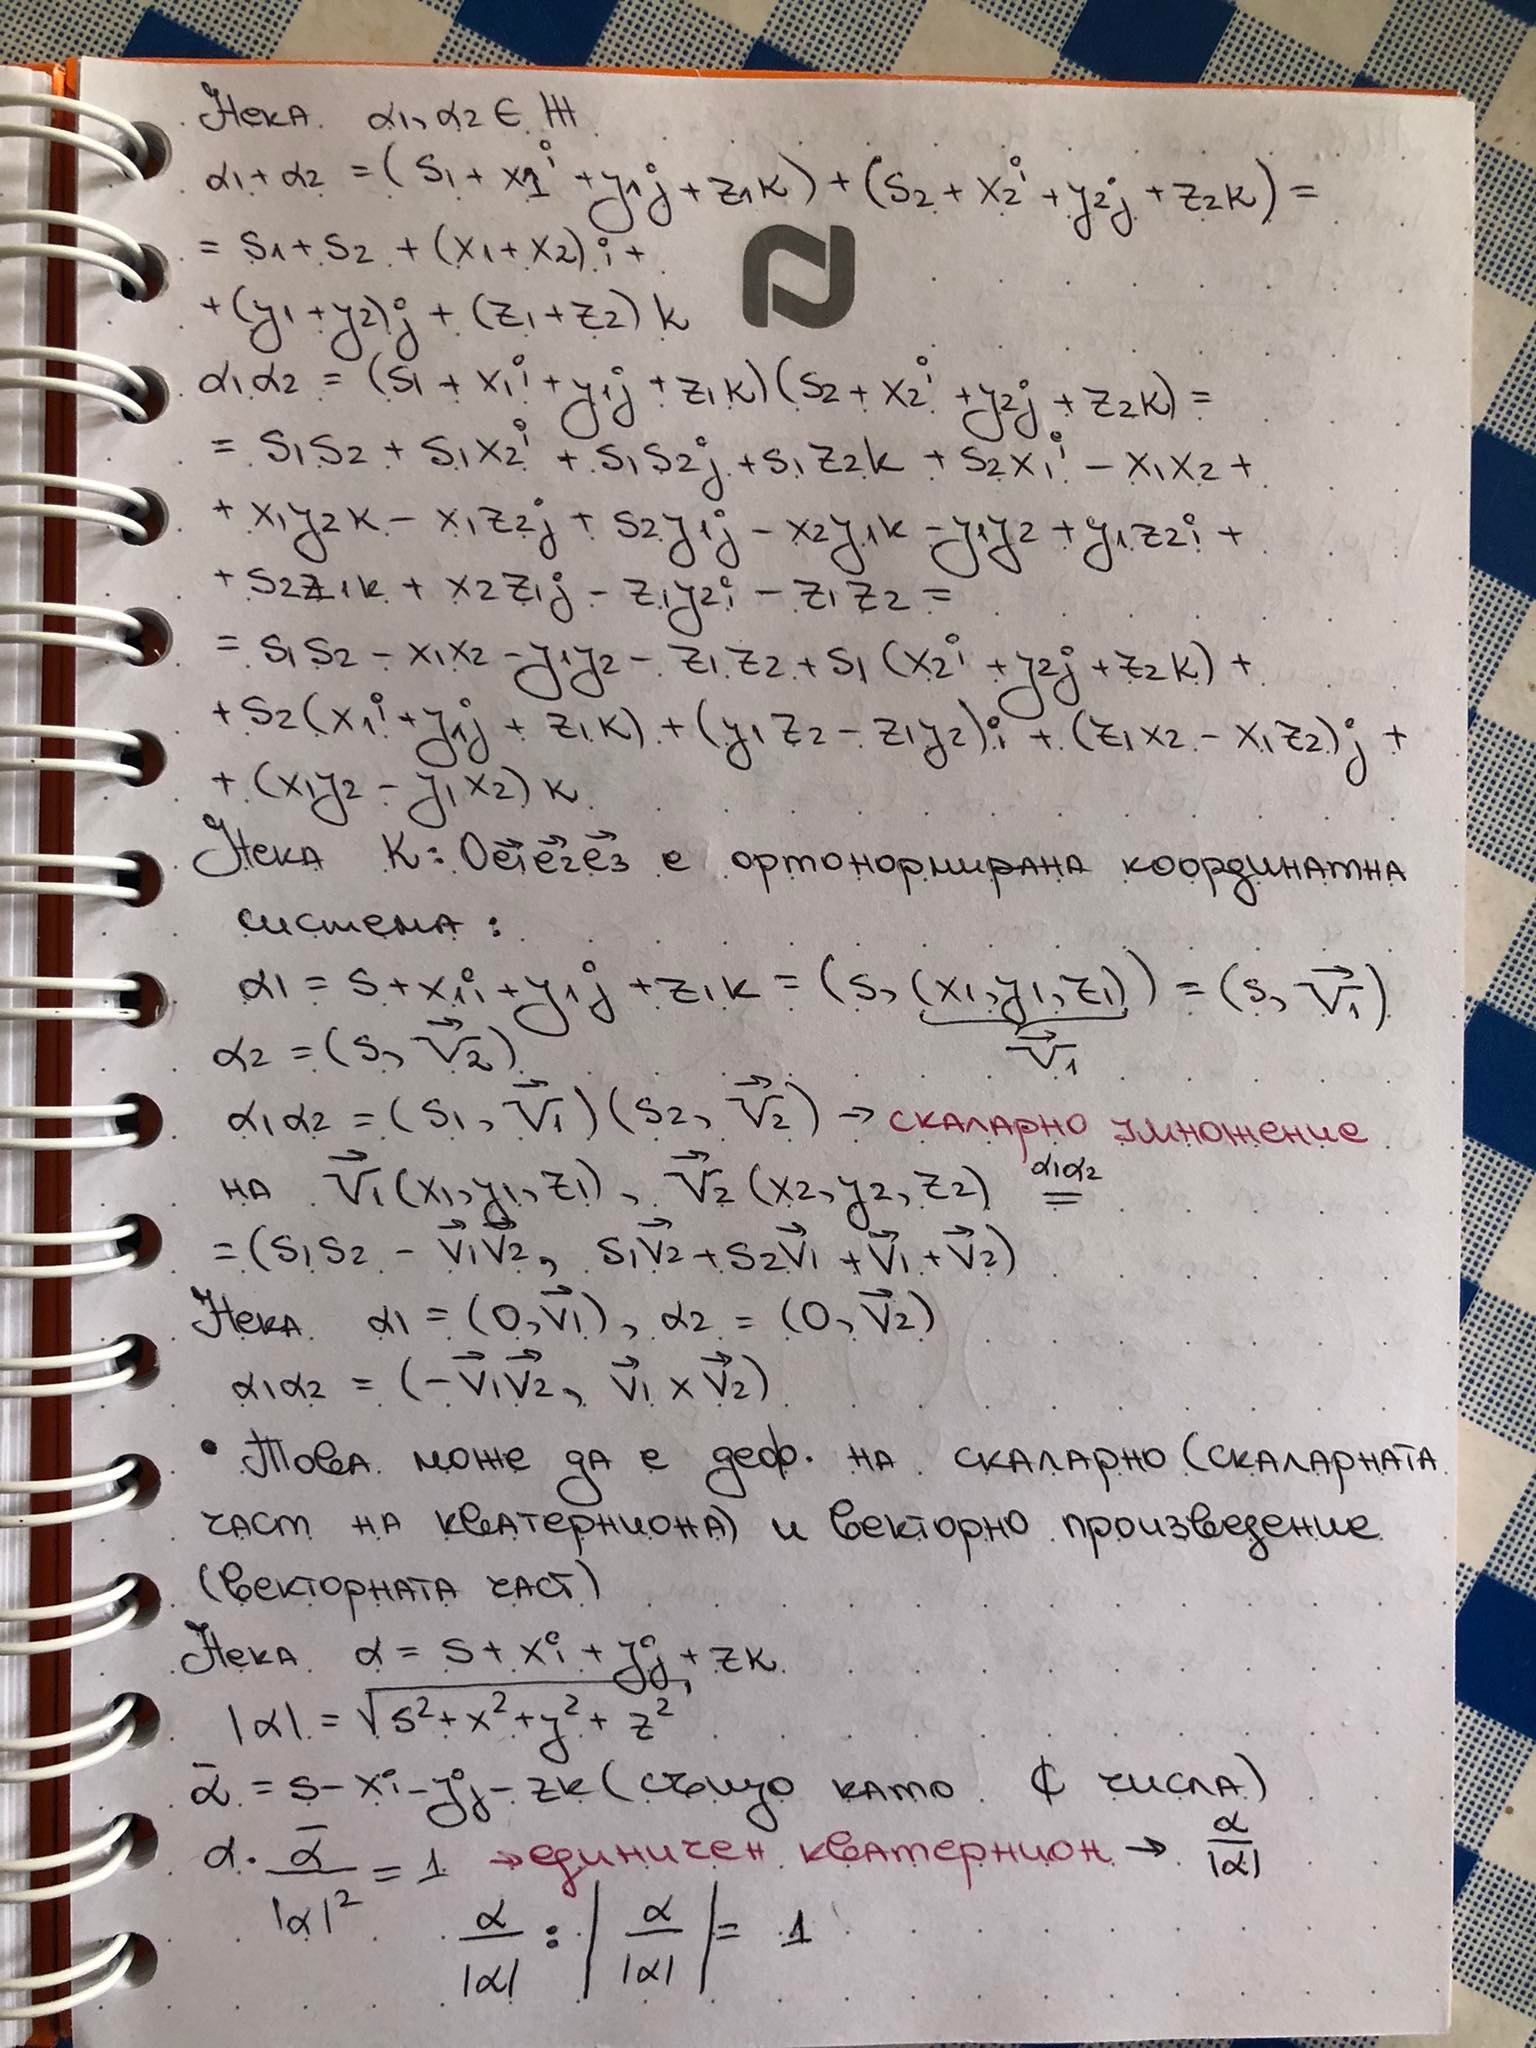 Нека α1, α2 ∈ ℍ
α1 + α2 = (s1 + x1i + y1j + z1k) + (s2 + x2i + y2j + z2k) =
= s1 + s2 + (x1 + x2)i +
+ (y1 + y2)j + (z1 + z2)k
α1α2 = (s1 + x1i + y1j + z1k)(s2 + x2i + y2j + z2k) =
= s1s2 + s1x2i + s1s2j + s1z2k + s2x1i − x1x2 +
+ x1y2k − x1z2j + s2y1j − x2y1k − y1y2 + y1z2i +
+ s2z1k + x2z1j − z1y2i − z1z2 =
= s1s2 − x1x2 − y1y2 − z1z2 + s1(x2i + y2j + z2k) +
+ s2(x1i + y1j + z1k) + (y1z2 − z1y2)i + (z1x2 − x1z2)j +
+ (x1y2 − y1x2)k
Нека K: Oe⃗1e⃗2e⃗3 е ортонормирана координатна
система:
α1 = s + x1i + y1j + z1k = (s, (x1, y1, z1)) = (s, v⃗1)
v⃗1
α2 = (s, v⃗2)
α1α2 = (s1, v⃗1)(s2, v⃗2) → скаларно умножение
на v⃗1(x1, y1, z1), v⃗2(x2, y2, z2) α1α2 =
= (s1s2 − v⃗1v⃗2, s1v⃗2 + s2v⃗1 + v⃗1 + v⃗2)
Нека α1 = (0, v⃗1), α2 = (0, v⃗2)
α1α2 = (−v⃗1v⃗2, v⃗1 × v⃗2)
• Това може да е деф. на скаларно (скаларната
част на кватерниона) и векторно произведение
(векторната част)
Нека α = s + xi + yj + zk
|α| = √s² + x² + y² + z²
ᾱ = s − xi − yj − zk (също като ℂ числа)
α · ᾱ/|α|² = 1 → единичен кватернион → α/|α|
α/|α| : |α/|α|| = 1